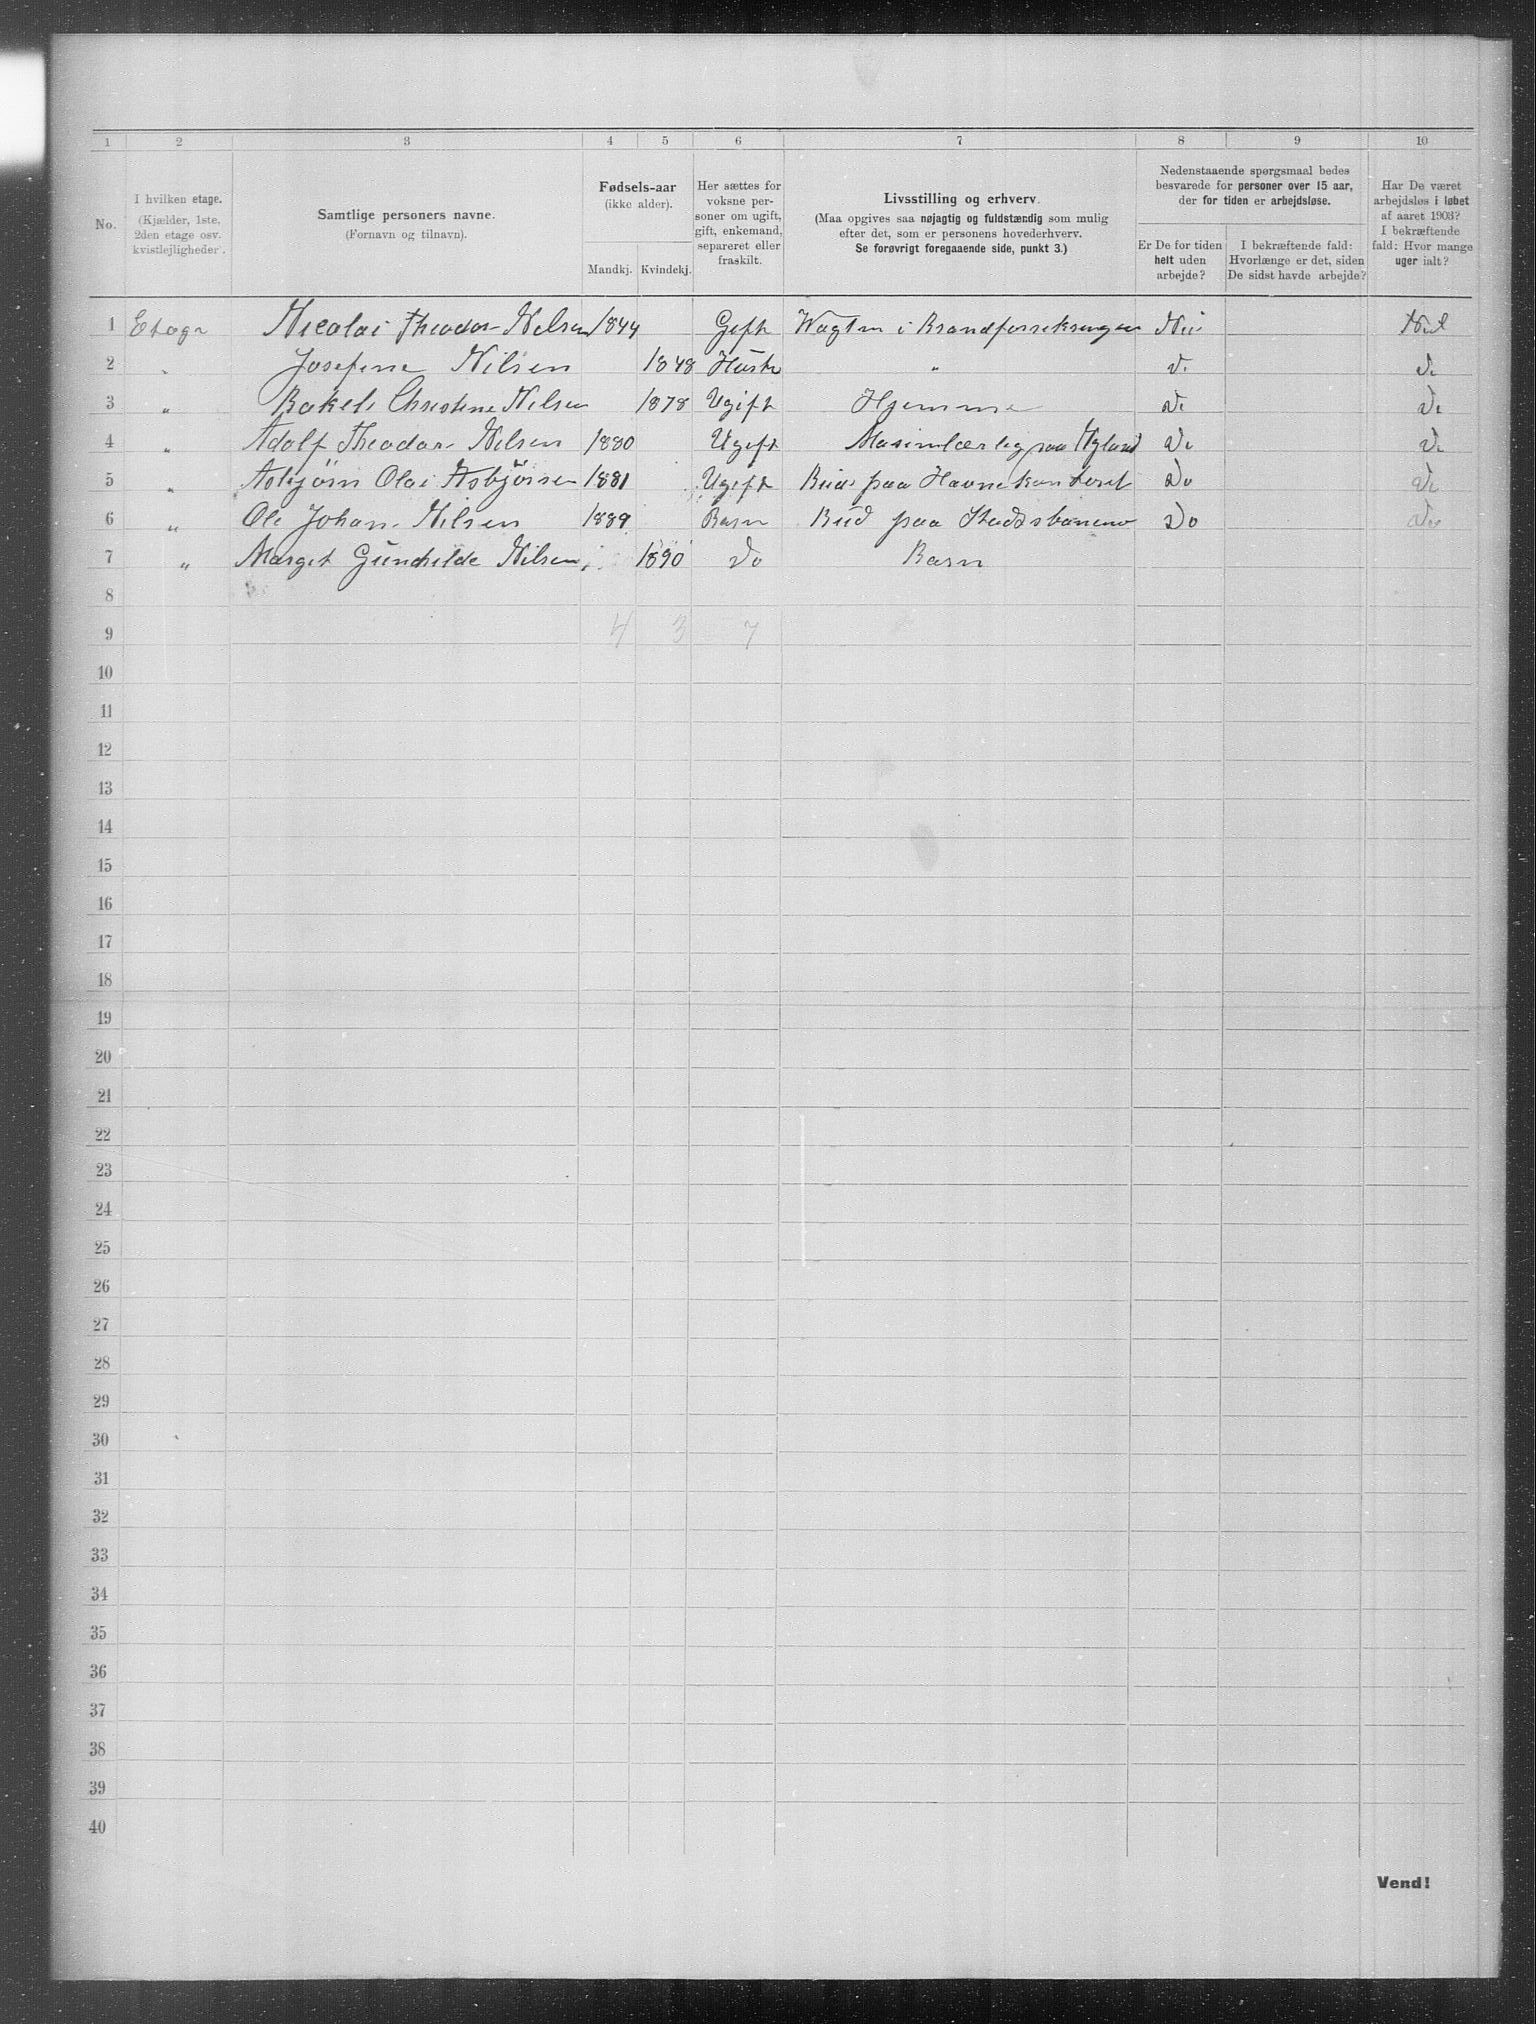 1 2 3 4 5 6 7 8 9 10
No.
I hvilken etage.
(Kjælder, 1ste,
2den etage osv.
kvistlejligheder.
Samtlige personers navne.
(Fornavn og tilnavn).
Fødsels-aar
(ikke alder).
Mandkj. Kvindekj.
Her sættes for
voksne per-
soner om ugift,
gift, enkemand,
separeret eller
fraskilt.
Livsstilling og erhverv.
(Maa opgives saa nøjagtig og fuldstændig som mulig
efter det, som er personens hovederhverv.
Se forøvrigt foregaaende side, punkt 3.)
Nedenstaaende spørgsmaal bedes
besvarede for personer over 15 aar,
der for tiden er arbejdsløse.
Er De for tiden
helt uden
arbejde?
I bekræftende fald:
Hvorlænge er det, siden
De sidst havde arbejde?
Har De været
arbejdsløs i løbet
af aaret 1903?
I bekræftende
fald: Hvor mange
uger ialt?
1 Etage Nicolai Theodor Nilsen 1844 Gift i Nei
2 Josefine Nilsen 1848 Hustr " Do Do
3 " Rakel Christine Nilsen 1878 Ugift Hjemme Do Do
4 " Adolf Theodor Nilsen 1880 Ugift paa Nyland Do Do
5 " Asbjörn Olai Asbjörsen 1881 Ugift Bud paa Havnekontoret Do Do
6 " Ole Johan Nilsen 1889 Barn Bud paa Do Do
7 " Marget Gunhilde Nilsen 1890 Do Barn
8
9 4 3 7
10
11
12
13
14
15
16
17
18
19
20
21
22
23
24
25
26
27
28
29
30
31
32
33
34
35
36
37
38
39
40
Vend!